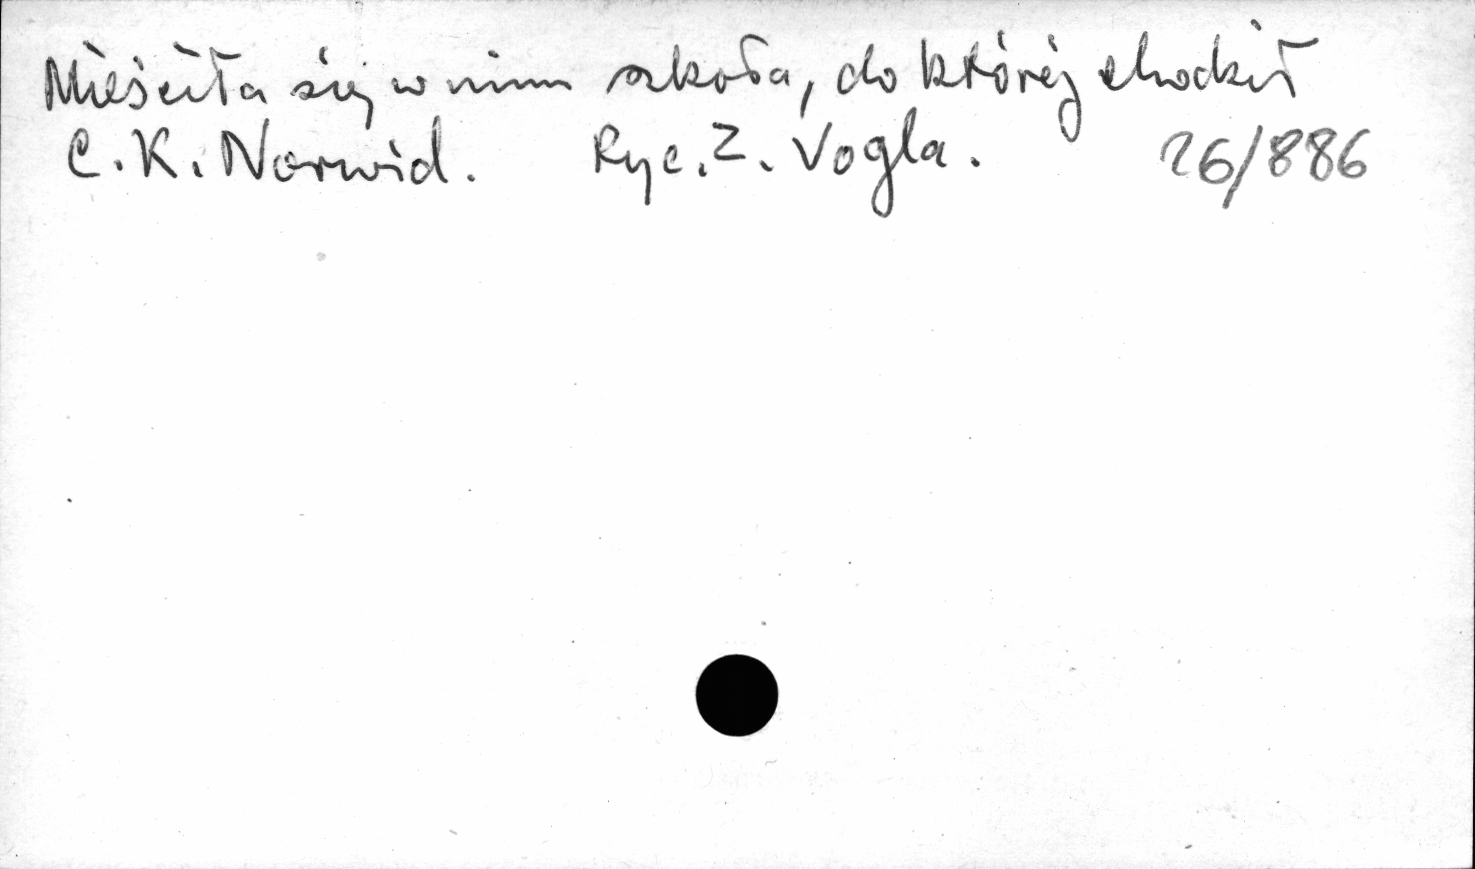 Mieściła się w nim szkoła, do której chodził
C. K. Norwid. Ryc. Z. Vogla. 26/886